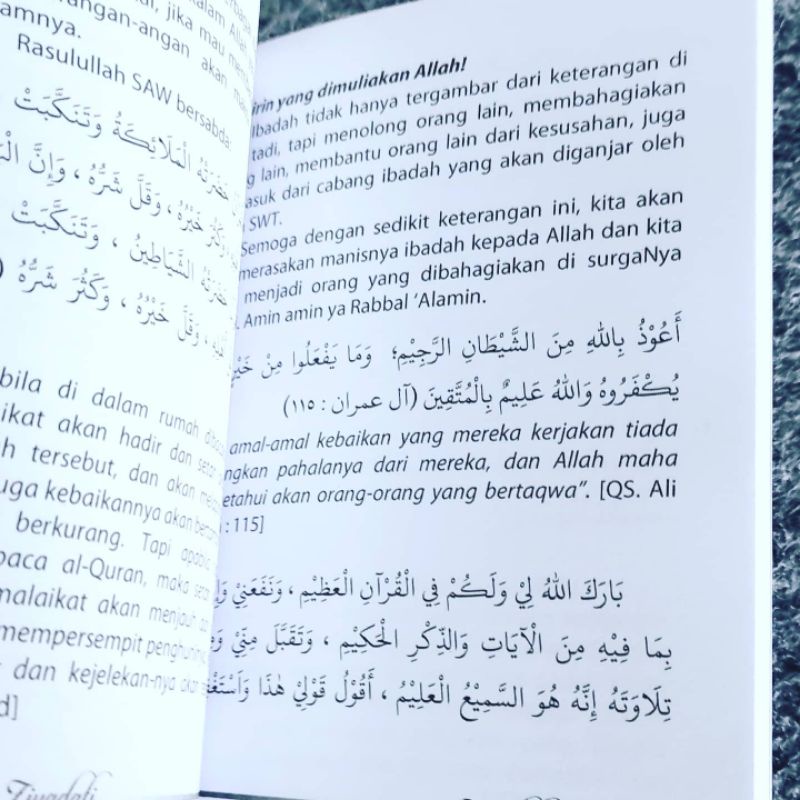 alam Allah
, jika mau
angan-angan akan
amnya.
Rasulullah SAW bersabda:
حَضَرَتْهُ الْمَلَائِكَةُ وَتَنَكَّبَتْ
وَكَثُرَ خَيْرُهُ ، وَقَلَّ شَرُّهُ ، وَإِنَّ
حَضَرَتْهُ الشَّيَاطِيْنُ ، وَتَنَكَّبَتْ
وَقَلَّ خَيْرُهُ ، وَكَثُرَ شَرُّهُ
bila di dalam rumah
ikat akan hadir dan
ah tersebut, dan akan
uga kebaikannya akan
berkurang. Tapi
baca al-Quran, maka
malaikat akan menjauh
mempersempit
dan kejelekan-nya akan
d]
irin yang dimuliakan Allah!
Ibadah tidak hanya tergambar dari keterangan di
tadi, tapi menolong orang lain, membahagiakan
g lain, membantu orang lain dari kesusahan, juga
asuk dari cabang ibadah yang akan diganjar oleh
SWT.
Semoga dengan sedikit keterangan ini, kita akan
merasakan manisnya ibadah kepada Allah dan kita
menjadi orang yang dibahagiakan di surgaNya
. Amin amin ya Rabbal ‘Alamin.
أَعُوْذُ بِاللهِ مِنَ الشَّيْطَانِ الرَّجِيْمِ؛ وَمَا يَفْعَلُوا مِنْ خَيْرٍ
يُكْفَرُوهُ وَاللهُ عَلِيمٌ بِالْمُتَّقِينَ (آل عمران : ١١٥)
amal-amal kebaikan yang mereka kerjakan tiada
ngkan pahalanya dari mereka, dan Allah maha
etahui akan orang-orang yang bertaqwa”. [QS. Ali
: 115]
بَارَكَ اللهُ لِيْ وَلَكُمْ فِي الْقُرْآنِ الْعَظِيْمِ ، وَنَفَعَنِيْ
بِمَا فِيْهِ مِنَ الْآيَاتِ وَالذِّكْرِ الْحَكِيْمِ ، وَتَقَبَّلَ مِنِّيْ
تِلَاوَتَهُ إِنَّهُ هُوَ السَّمِيْعُ الْعَلِيْمُ ، أَقُوْلُ قَوْلِيْ هٰذَا